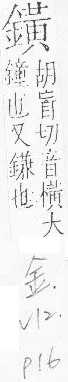 鐄
胡盲切音橫大
鐘也又鎌也
金.
V12.
P16